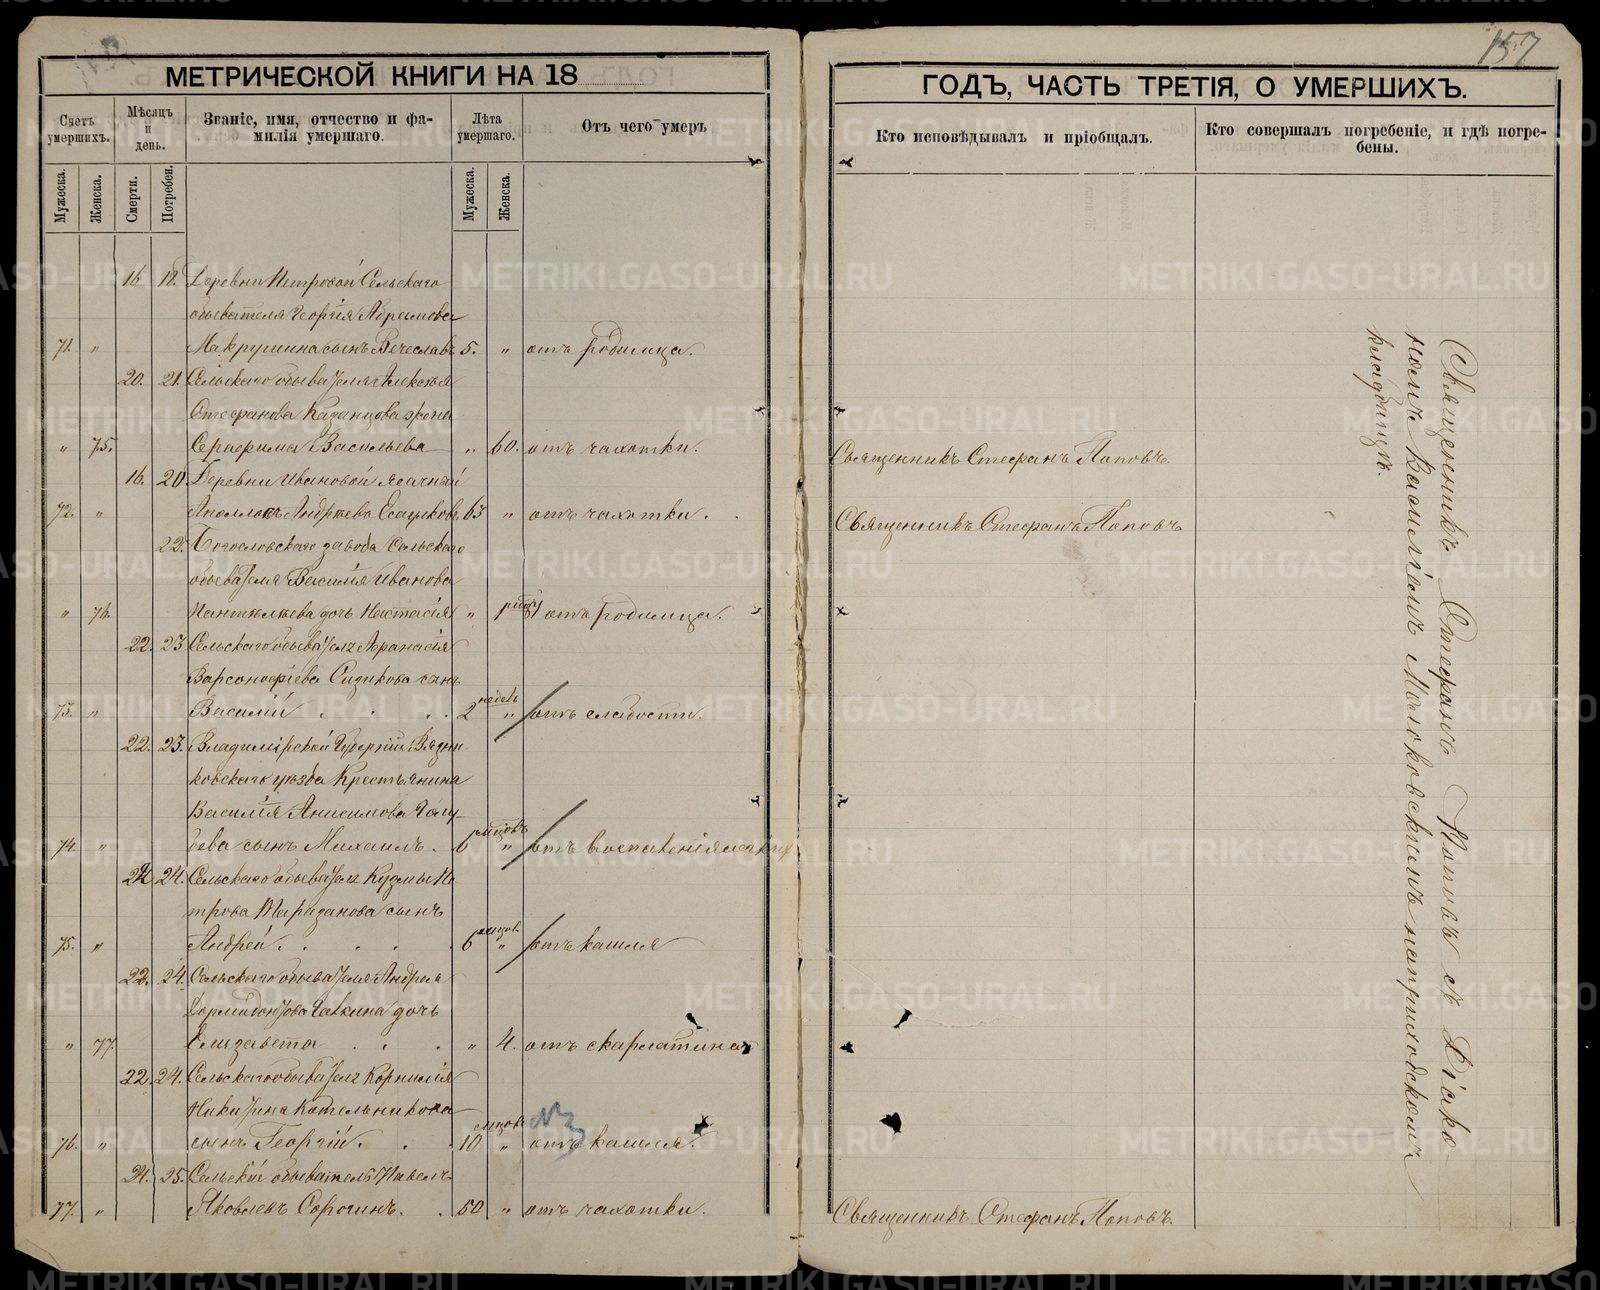 157
МЕТРИЧЕСКОЙ КНИГИ НА 18
ГОДЪ, ЧАСТЬ ТРЕТІЯ, О УМЕРШИХЪ.
Счетъ умершихъ.
Мѣсяцъ и день.
Званіе, имя, отчество и фа-
милія умершаго.
Лѣта умершаго.
Отъ чего умеръ
Кто исповѣдывалъ и пріобщалъ.
Кто совершалъ погребеніе, и гдѣ погре-
бены.
Мужеска.
Женска.
Смерти.
Погребен.
Мужеска.
Женска.
16 18. Деревни Петровой Сельскаго
обывателя Георгія Абрамова
71. " Макрушина сынъ Вечеславъ 5. " отъ родимца.
20. 21. Сельскаго обывателя Алексѣя
Стефанова Казанцова жена
" 75. Серафима Васильева " 60. отъ чахотки. Священникъ Стефанъ Поповъ.
16. 20. Деревни Ивановой ясачный
72. " Аполлосъ Андреева Есаулковъ 63 " отъ чахотки. Священникъ Стефанъ Поповъ
22. Богословскаго завода Сельскаго
обывателя Василія Иванова
" 76. Пантелѣева дочь Настасія " 1 отъ родимца.
22. 23. Сельскаго обывателя Афанасія
Варсонофіева Сизикова сынъ
73. " Василій 2 недѣл " отъ слабости.
22. 23. Владимірской Губерніи Вязни
ковскаго уѣзда Крестьянина
Василія Анисимова Голу-
74. " бева сынъ Михаилъ. 6 мѣсцовъ " отъ воспаленія легких
24 24. Сельскаго обывателя Кузмы Пе
трова Таразанова сынъ
75. " Андрей. 6 мѣсцов. " отъ кашля
22. 24. Сельскаго обывателя Андрея
Дормидонтова Чапкина дочь
" 77. Елизавета " 4. отъ скарлатины
22. 24. Сельскаго обывателя Корнилія
Никитина Котельникова
76. " сынъ Георгій. 10 мѣсцов " отъ кашля.
24. 25. Сельскій обыватель Павелъ
77. " Яковлевъ Сорогинъ. 50 " отъ чахотки. Священникъ Стефанъ Поповъ.
Священникъ Стефанъ Поповъ съ Діако
номъ Василіомъ Маляковскимъ на приходскомъ
кладбищѣ.
METRIKI.GASO-URAL.RU